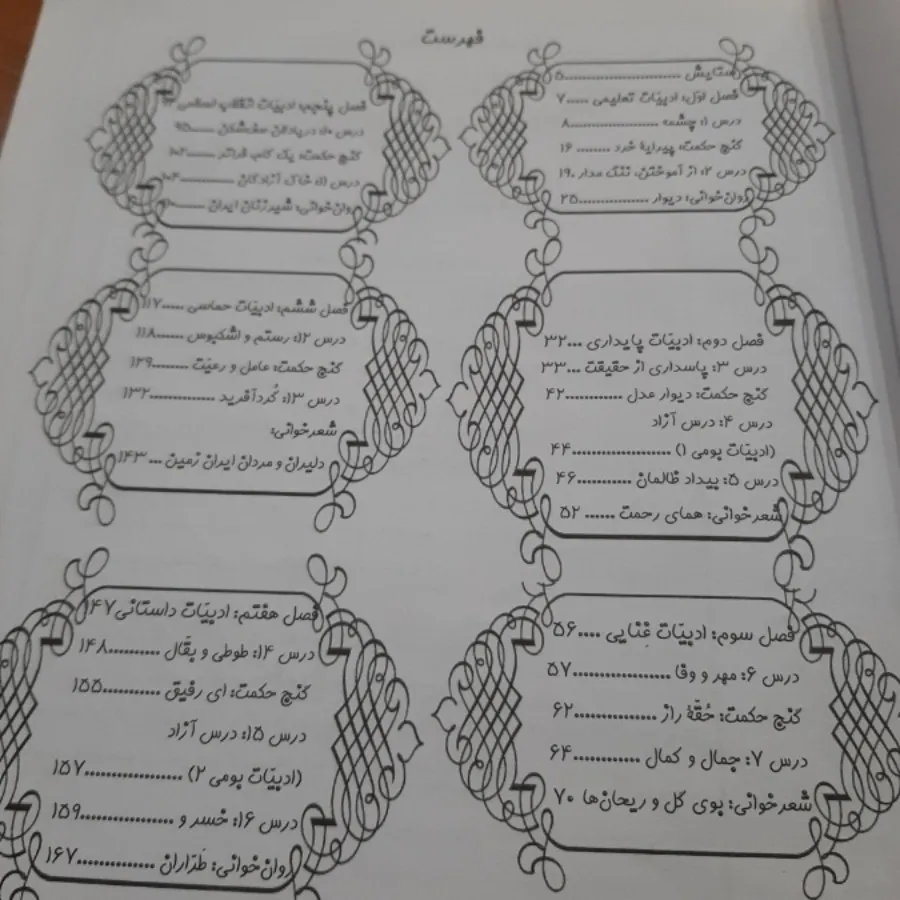 فهرست
ستایش ..........................۵
فصل اوّل: ادبیّات تعلیمی .....۷
درس ۱: چشمه ....................۸
گنج حکمت: پیرایهٔ خرد ........ ۱۶
درس ۲: از آموختن، ننگ مدار .۱۹
روان‌خوانی: دیوار ................۲۵
فصل دوم: ادبیّات پایداری ...۳۲
درس ۳: پاسداری از حقیقت ...۳۳
گنج حکمت: دیوار عدل ............۴۲
درس ۴: درس آزاد
(ادبیّات بومی ۱) ....................۴۴
درس ۵: بیداد ظالمان ...........۴۶
شعرخوانی: همای رحمت ...... ۵۲
فصل سوم: ادبیّات غِنایی ....۵۶
درس ۶: مهر و وفا ...................۵۷
گنج حکمت: حُقّهٔ راز ................۶۲
درس ۷: جمال و کمال .............۶۴
شعرخوانی: بوی گل و ریحان‌ها ۷۰
فصل پنجم: ادبیّات انقلاب اسلامی
درس ۱۰: دریادلان صف‌شکن .....۹۵
گنج حکمت: یک گام، فراتر ......
درس ۱۱: خاک آزادگان ............
روان‌خوانی: شیرزنان ایران ......
فصل ششم: ادبیّات حماسی .....۱۱۷
درس ۱۲: رستم و اشکبوس ......۱۱۸
گنج حکمت: عامل و رعیّت ........۱۲۹
درس ۱۳: گُردآفرید ..............۱۳۲
شعرخوانی:
دلیران و مردان ایران زمین ... ۱۴۳
فصل هفتم: ادبیّات داستانی ۱۴۷
درس ۱۴: طوطی و بقّال ..........۱۴۸
گنج حکمت: ای رفیق ...........۱۵۵
درس ۱۵: درس آزاد
(ادبیّات بومی ۲) ...................۱۵۷
درس ۱۶: خسر و ...................۱۵۹
روان‌خوانی: طرّاران ...............۱۶۷